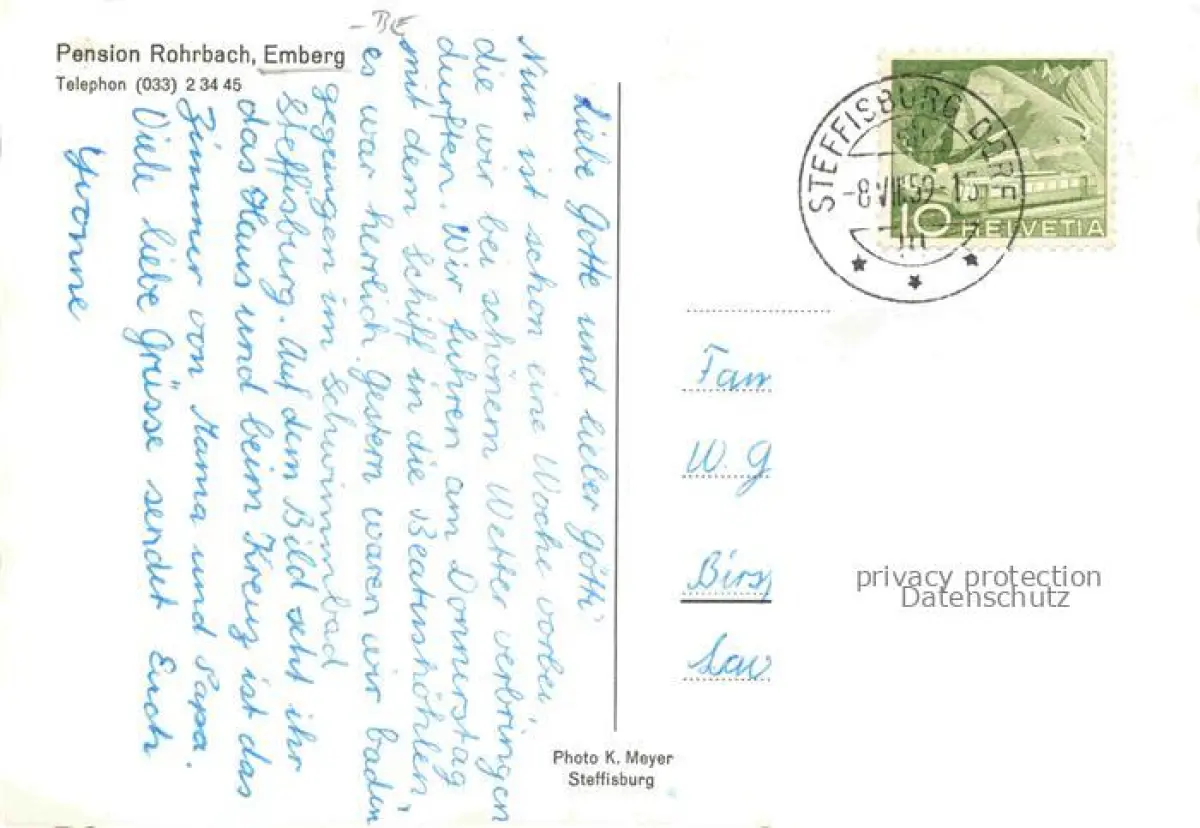 Pension Rohrbach, Emberg
Telephon (033) 2 34 45
BE
Liebe Gotte und lieber Götti
Nun ist schon eine Woche vorbei,
die wir bei schönem Wetter verbringen
durften. Wir fuhren am Donnerstag
mit dem Schiff in die Beatushöhlen
es war herrlich. Gestern waren wir baden
gegeingen im Schwimmbad
Steffisburg. Auf dem Bild seht ihr
das Haus und beim Kreuz ist das
Zimmer von Mama und Papa.
Viele liebe Grüsse sendet Euch
Yvonne
Photo K. Meyer
Steffisburg
STEFFISBURG DORF
-8.VIII.59-15
10 HELVETIA
Fam
W. G
Birs
privacy protection
Datenschutz